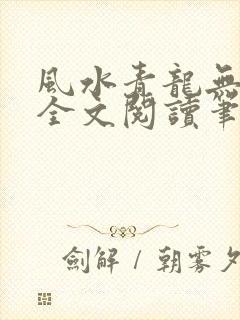 風水青龍無
全文閱讀筆
劍解 / 朝霧夕